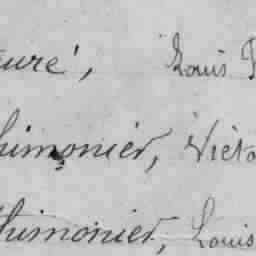 euré, Louis
himonier, Victo
Thimonier, Louis